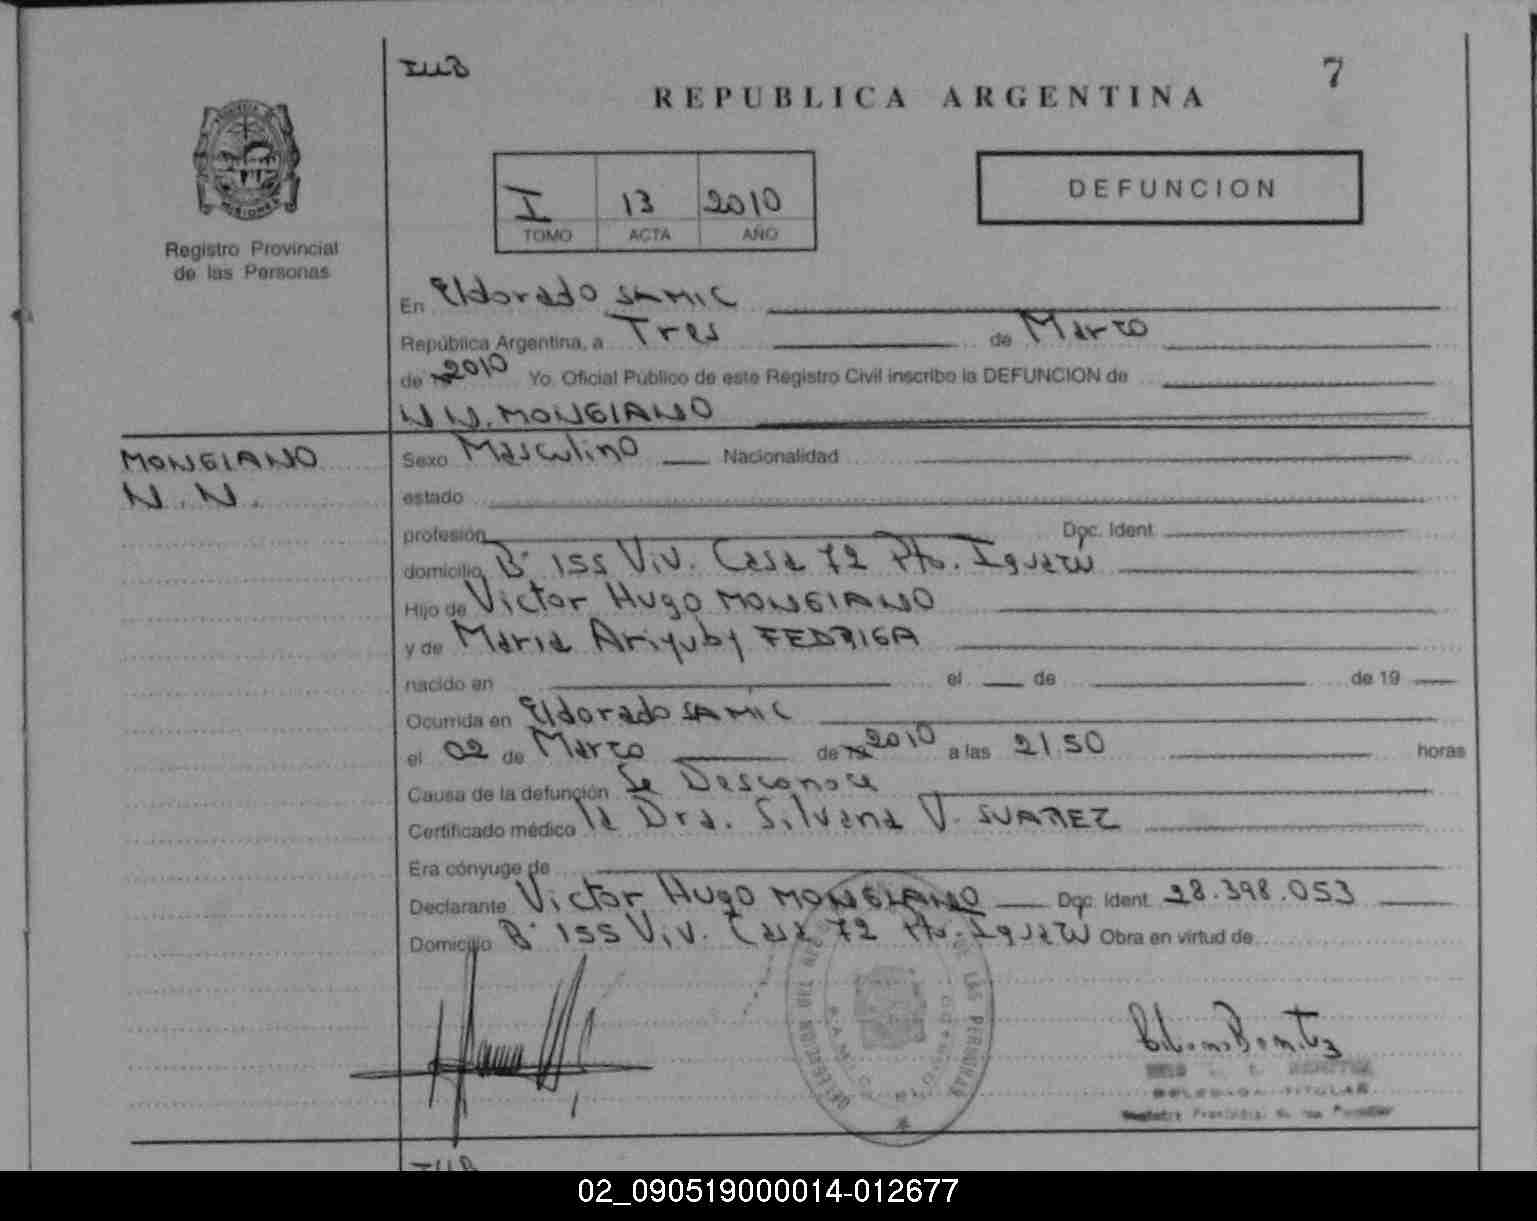 IUB
7
REPUBLICA ARGENTINA
MISIONES
Registro Provincial
de las Personas
I 13 2010
TOMO ACTA AÑO
DEFUNCION
En Eldorado SAMIC
República Argentina, a Tres de Marzo
de 2010 Yo. Oficial Público de este Registro Civil inscribo la DEFUNCION de
N N. MONGIANO
MONGIANO
N. N.
Sexo Masculino Nacionalidad
estado
profesión Doc. Ident.
domicilio B° 155 Viv. Casa 72 Pto. Iguazú
Hijo de Victor Hugo MONGIANO
y de Maria Ariyuby FEDRIGA
nacido en el de de 19
Ocurrida en Eldorado SAMIC
el 02 de Marzo de 2010 a las 21.50 horas
Causa de la defunción Se Desconoce
Certificado médico la Dra. Silvana V. SUAREZ
Era cónyuge de
Declarante Victor Hugo MONGIANO Doc. Ident. 28.398.053
Domicilio B° 155 Viv. Casa 72 Pto. Iguazú Obra en virtud de
DE LAS PERSONAS
Benitez
DELEGADA TITULAR
IUB
02_090519000014-012677